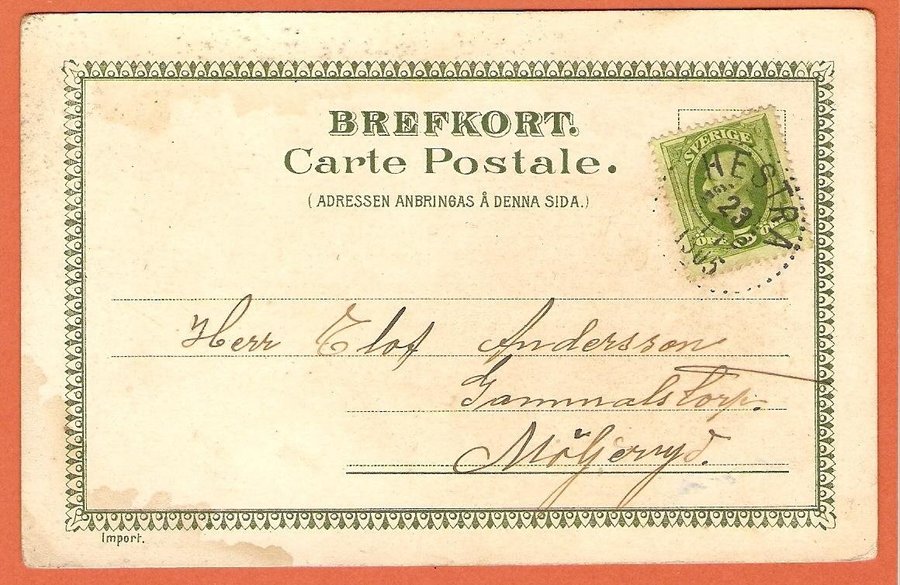 BREFKORT.
Carte Postale.
(ADRESSEN ANBRINGAS Å DENNA SIDA.)
SVERIGE
HESTRA
23
1905
5 ÖRE
Herr Elof Andersson
Gammalstorp.
Möljeryd.
Import.